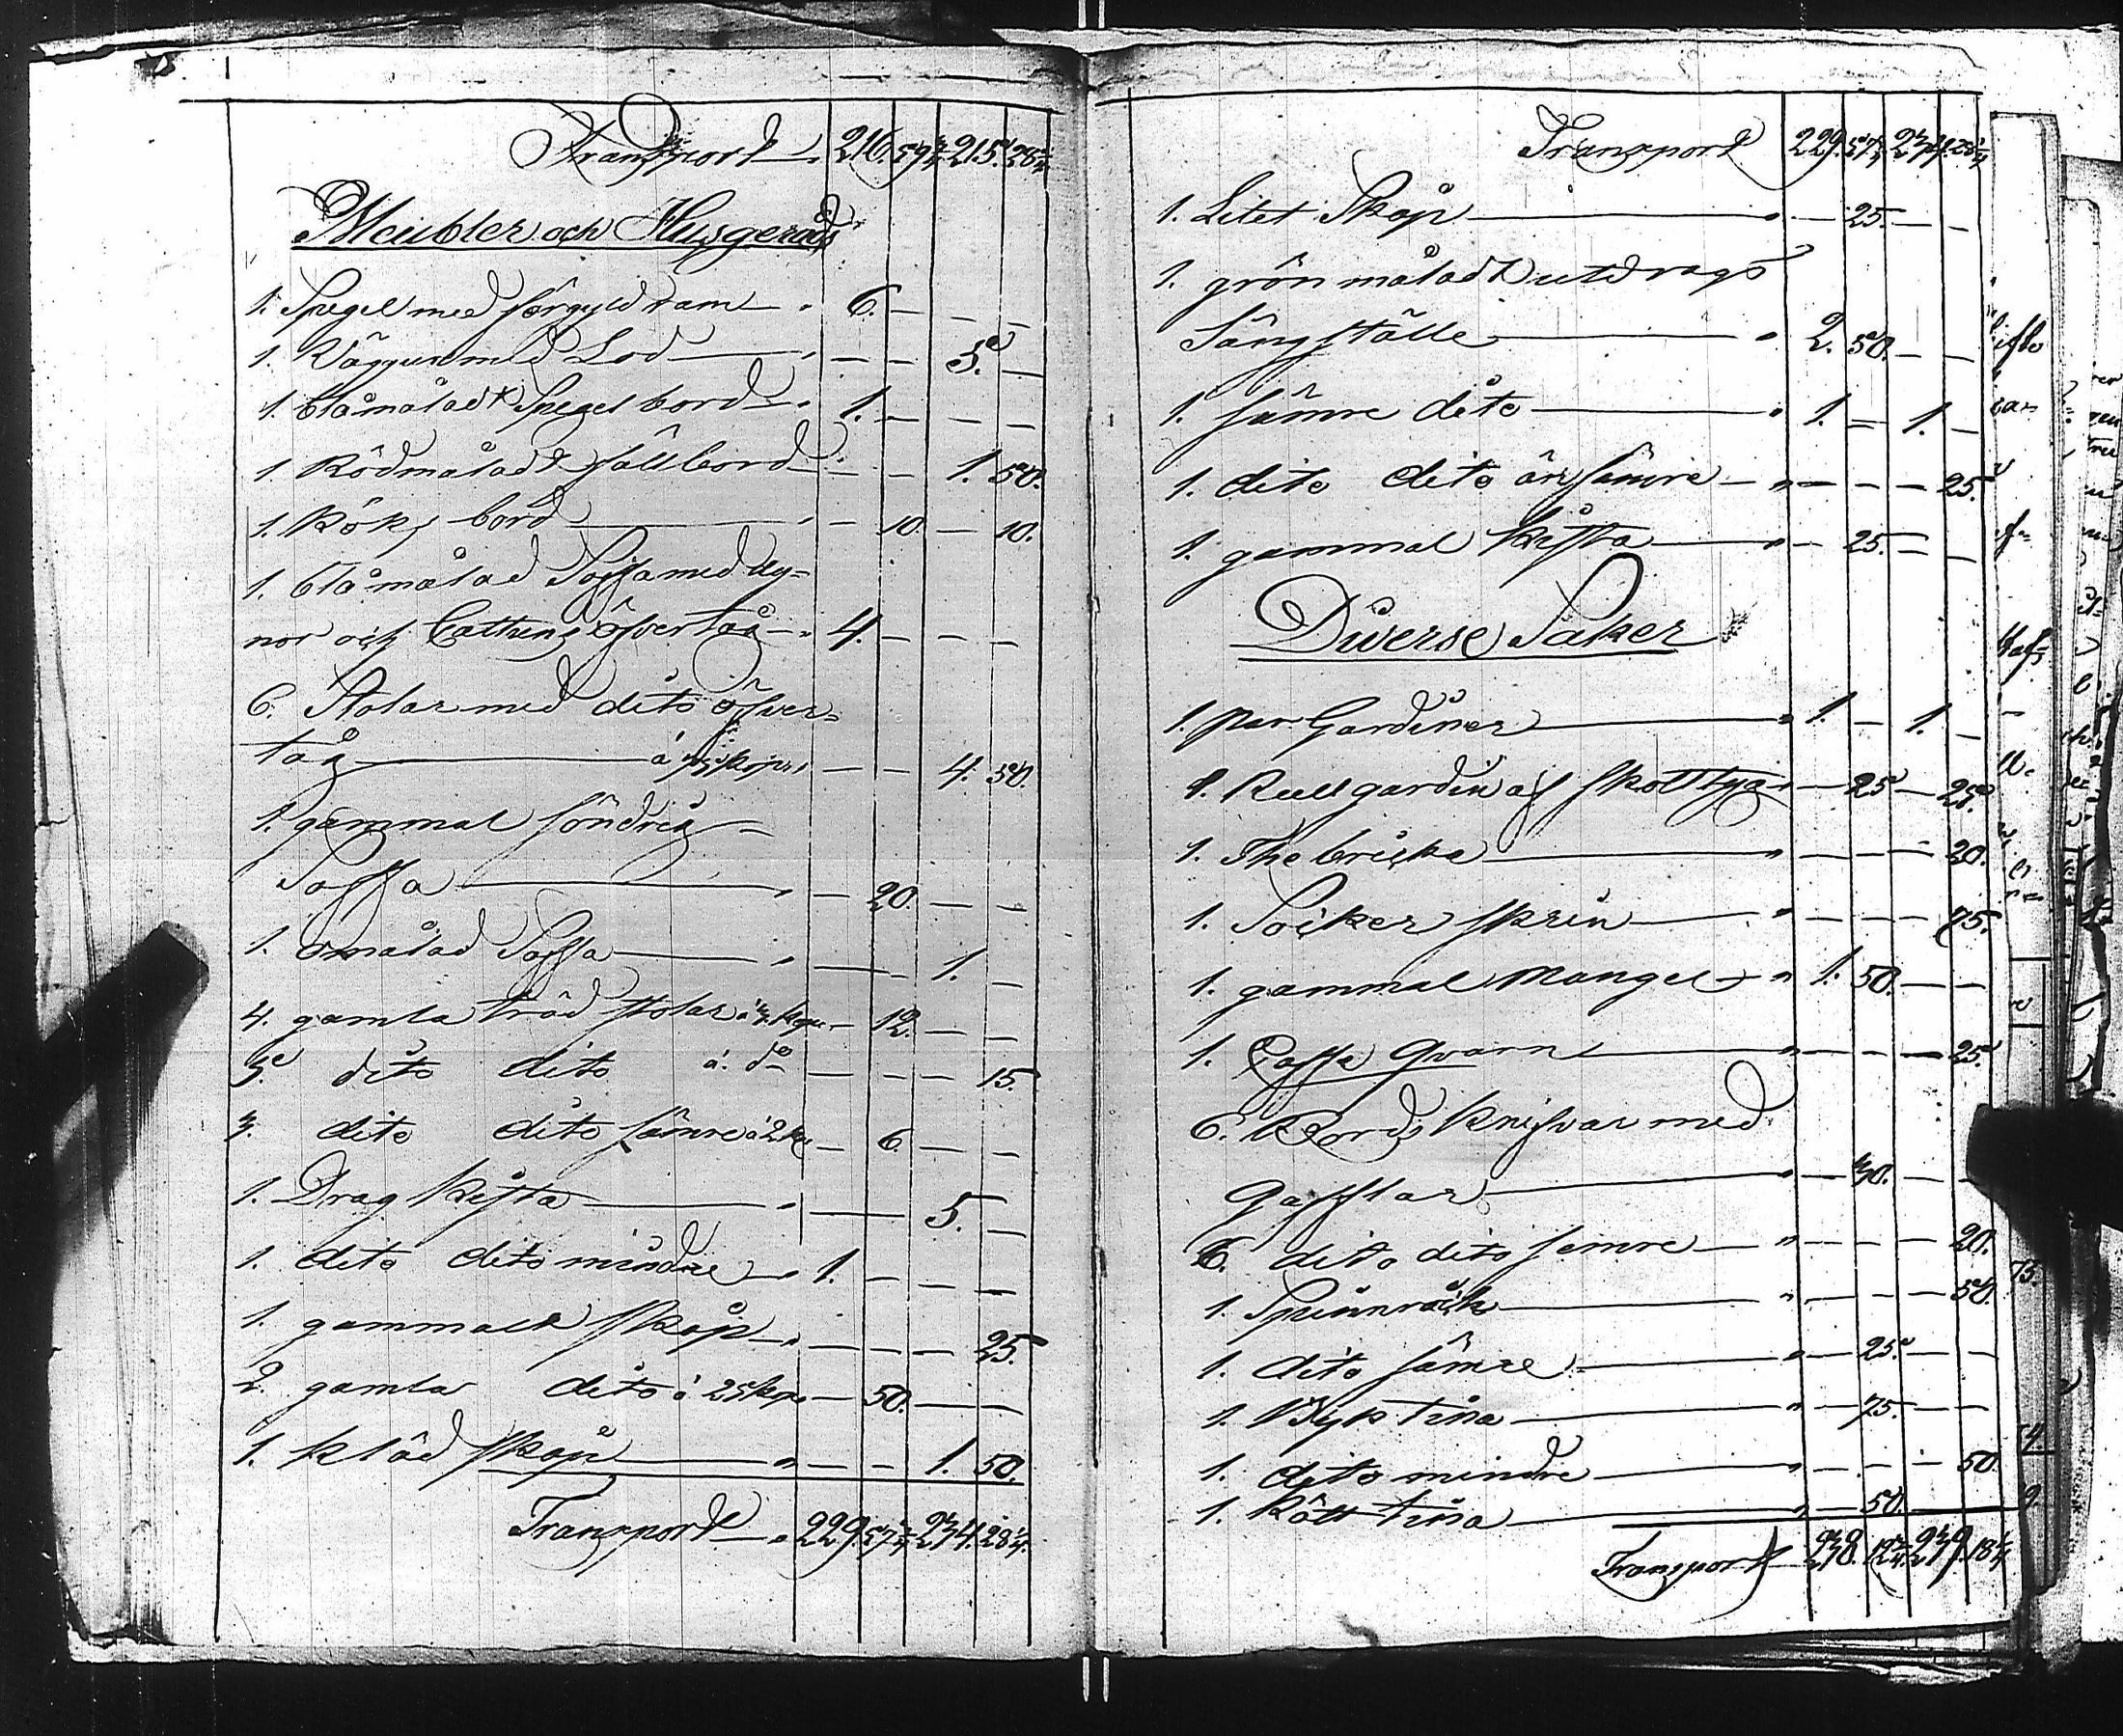 Transport 216. 59¾ 215. 28¼
Meubler och Husgeråds
1. Spegel med förgyld ram 6. — — —
1. Väggur med Lod — — 5. —
1. blåmåladt Spegel bord 1. — — —
1. Rödmåladt fällbord — — 1. 50.
1. Köks bord — 10. — 10.
1. blåmålad Soffa med dy=
nor och Cattuns öfvertåg 4. — — —
6. Stolar med dito öfver=
tåg à 75 kop. — — 4. 50.
1. gammal söndrig
Soffa — 20. — —
1. omålad Soffa — — 1. —
4. gamla träd stolar à 3 kop. — 12. — —
5. dito dito à do — — — 15.
3. dito dito sämre à 2 kop — 6. — —
1. Drag kista — — 5. —
1. dito dito mindre 1. — — —
1. gammalt skåp — — — 25.
2. gamla dito à 25 kop. — 50. — —
1. kläd skåp — — 1. 50.
Transport 229. 57¾ 234. 28¼
Transport 229. 57¾ 234. 28¼
1. Litet Skåp — 25. — —
1. grön måladt utdrags
Sängställe 2. 50. — —
1. sämre dito 1. — 1. —
1. dito dito än sämre — — — 25.
1. gammal kista — 25. — —
Diverse Saker
1. par Gardiner 1. — 1. —
1. Rullgardin af skottstyg — 25 — 25.
1. The bricka — — — 20.
1. Socker skrin — — — 75.
1. gammal Mangel 1. 50. — —
1. Caffe Qvarn — — — 25.
6. Bords knifvar med
Gafflar — 30. — —
6. dito dito semre — — — 20.
1. Spinnråck — — — 50.
1. dito sämre — 25. — —
1. Byk tina — 75. — —
1. dito mindre — — — 50.
1. Kött tina — 50. — —
Transport 238. 12¾ 239. 18¼
75.